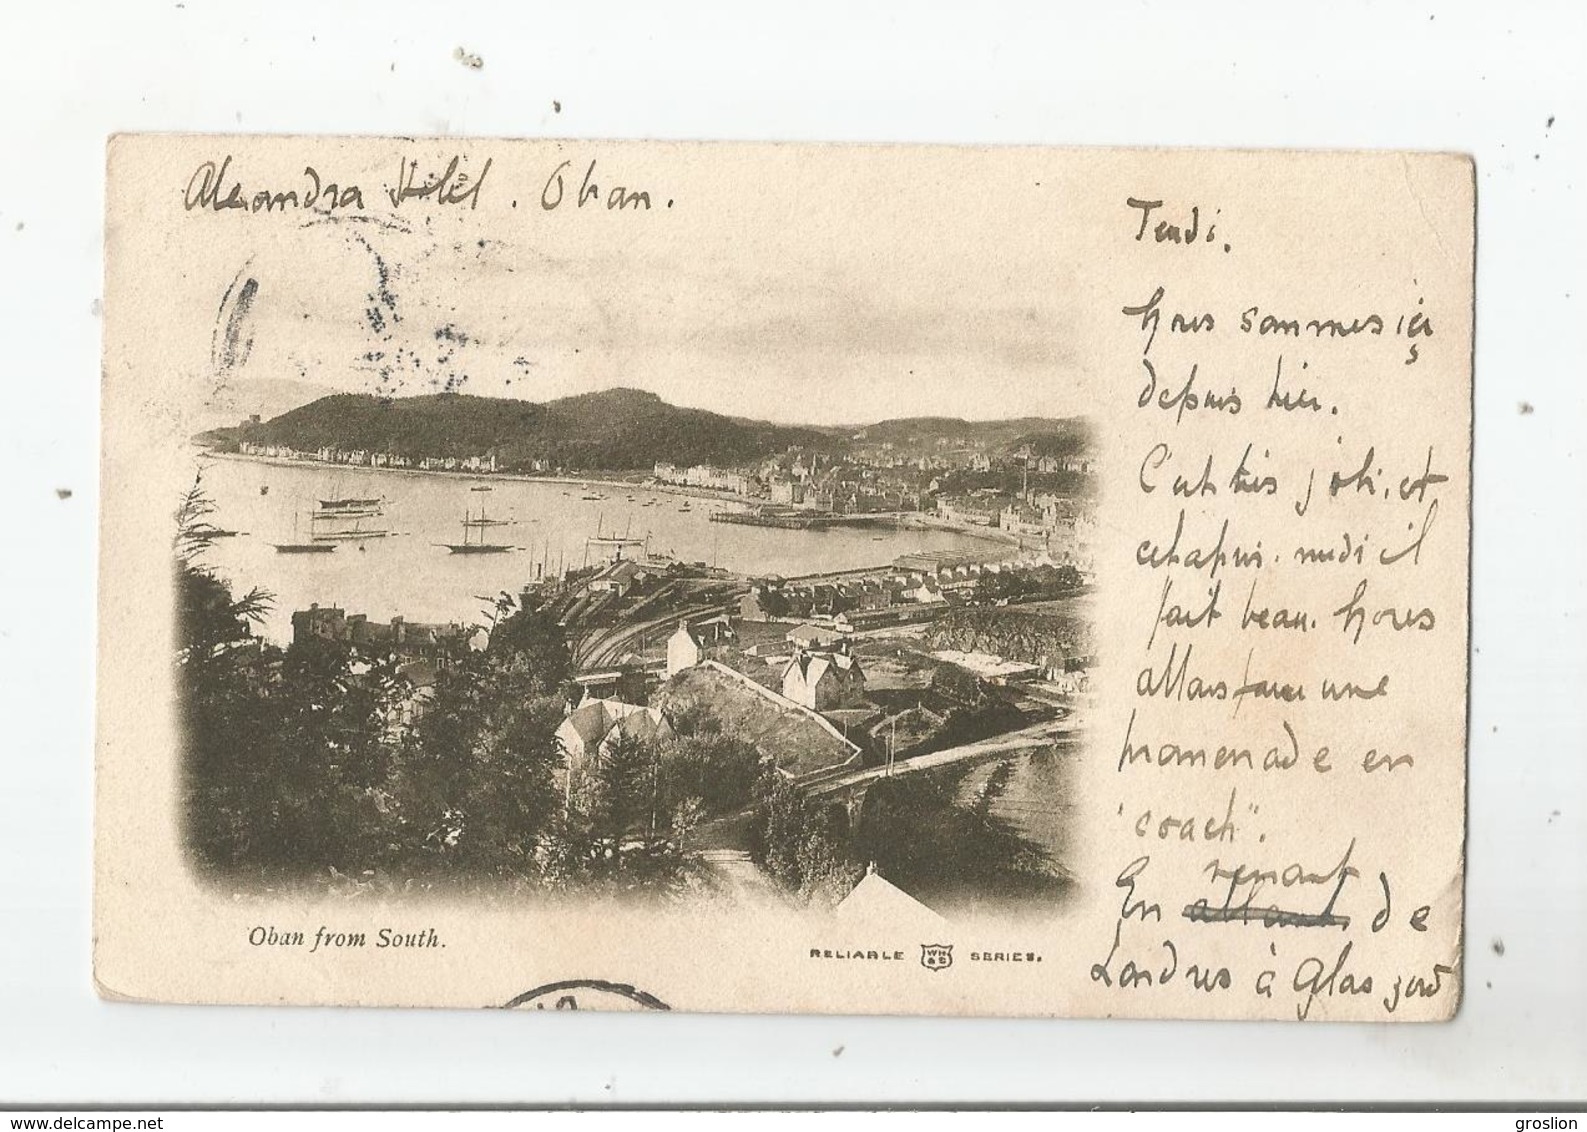 Alexandra Hotel. Oban.
Jeudi.
Nous sommes ici
depuis hier.
C'est très joli, et
cet après. midi il
fait beau. Nous
allons faire une
promenade en
"coach".
venant
En allant de
Londres à Glasgow
Oban from South.
RELIABLE WR & S SERIES.
www.delcampe.net
groslion